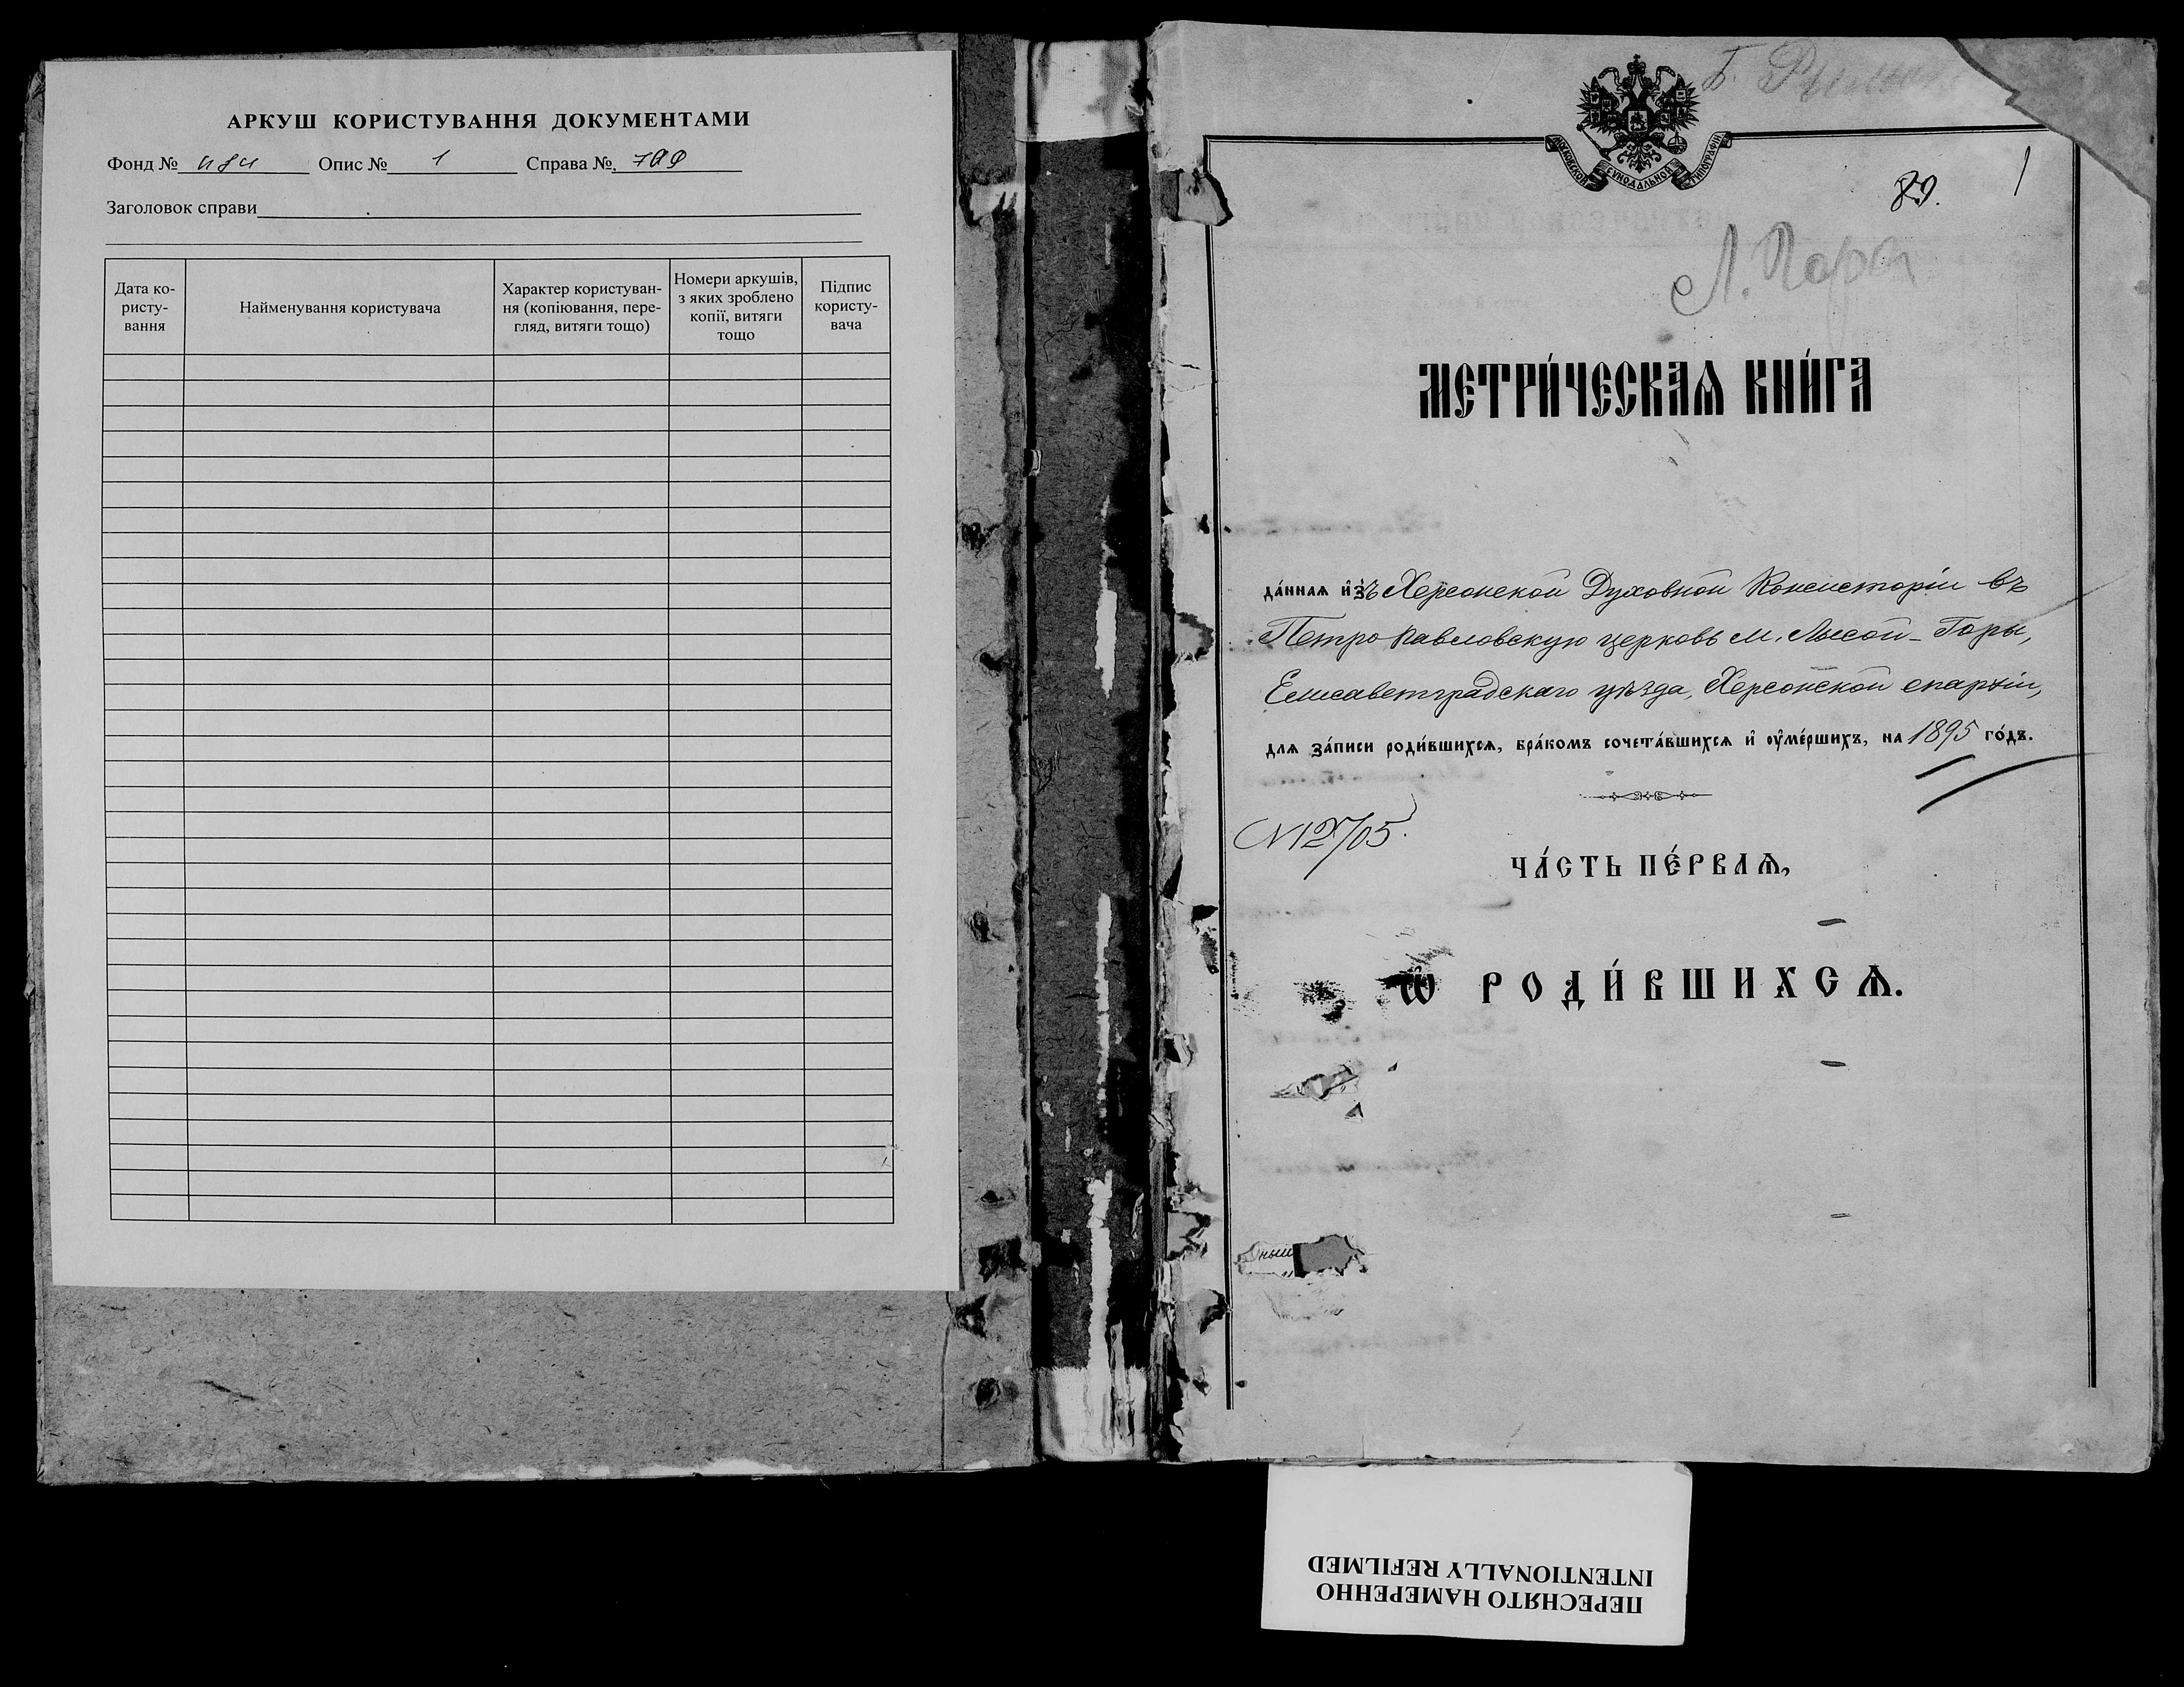 АРКУШ КОРИСТУВАННЯ ДОКУМЕНТАМИ
Фонд № Опис № 1 Справа №
Заголовок справи
Дата ко-
ристу-
вання
Найменування користувача
Характер користуван-
ня (копіювання, пере-
гляд, витяги тощо)
Номери аркушів,
з яких зроблено
копії, витяги
тощо
Підпис
користу-
вача
МОСКОВСКОЙ СѴНОДАЛЬНОЙ ТИПОГРАФІИ
89. 1
Л. Гора
МЕТРИ́ЧЕСКАѦ КНИ́ГА
да́ннаѧ и҆зъ Херсонской Духовной Консисторіи въ
Петро-Павловскую церковь м. Лысой-Горы,
Елисаветградскаго уѣзда, Херсонской епархіи,
для за́писи роди́вшихсѧ, бра́комъ сочета́вшихсѧ и҆ ᲂу҆ме́ршихъ, на 1895 го́дъ.
N 12705.
ЧА́СТЬ ПЕ́РВАѦ,
Ѡ҆ РОДИ́ВШИХСѦ.
ПЕРЕСНЯТО НАМЕРЕННО
INTENTIONALLY REFILMED